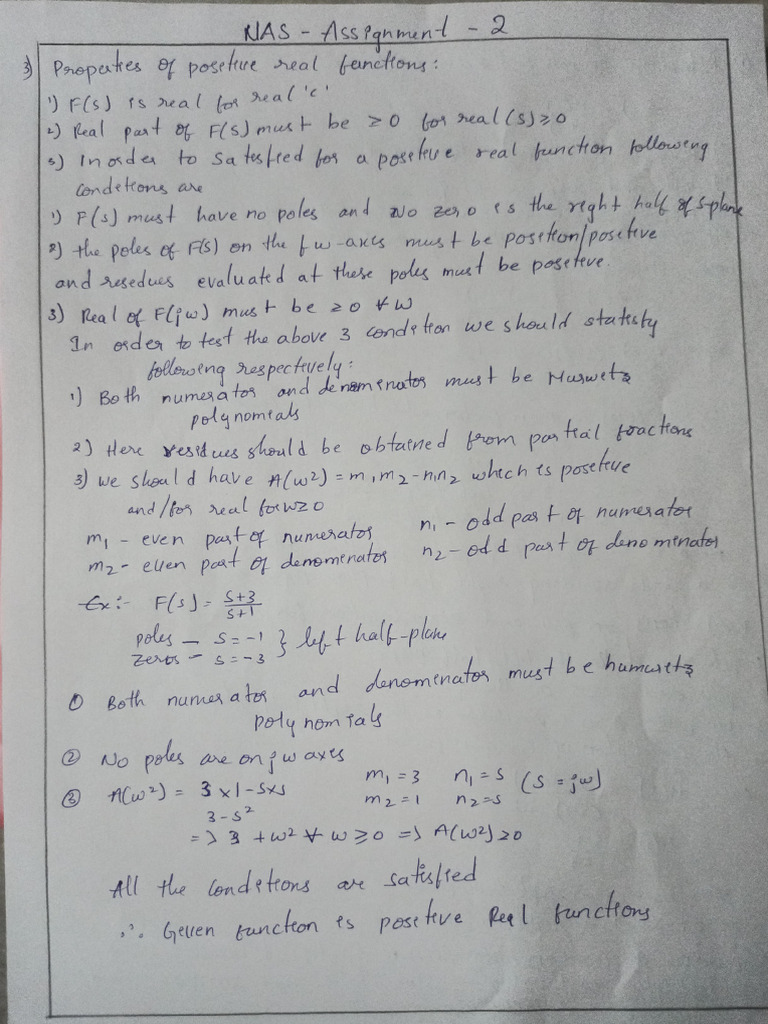 NAS - Assignment - 2
3) Properties of positive real functions:
1) F(s) is real for real 'c'
2) Real part of F(s) must be ≥0 for real(s)≥0
3) In order to satesfied for a positive real function following
conditions are
1) F(s) must have no poles and No zero is the right half of s-plane
2) the poles of F(s) on the jw-axis must be position/positive
and resedues evaluated at these poles must be positive.
3) Real of F(jw) must be ≥0 ∀ W
In order to test the above 3 condition we should statisty
following respectively:
1) Both numerator and denominator must be Hurwetz
polynomials
2) Here residues should be obtained from partial fractions
3) we should have A(w²) = m₁m₂-n₁n₂ which is positive
and/for real for w≥0
m₁ - even part of numerator n₁ - odd part of numerator
m₂ - even part of denominator n₂ - odd part of denominator
Ex:- F(s) = s+3/s+1
poles - s = -1 } left half-plane
zeros - s = -3
① Both numerator and denominator must be humuretz
polynomials
② No poles are on jw axes
③ A(w²) = 3×1-s×s m₁ = 3 n₁ = s (s = jw)
3-s² m₂ = 1 n₂ = s
=> 3 + w² ∀ w ≥ 0 => A(w²) ≥0
All the conditions are satisfied
∴ Given function is positive Real functions